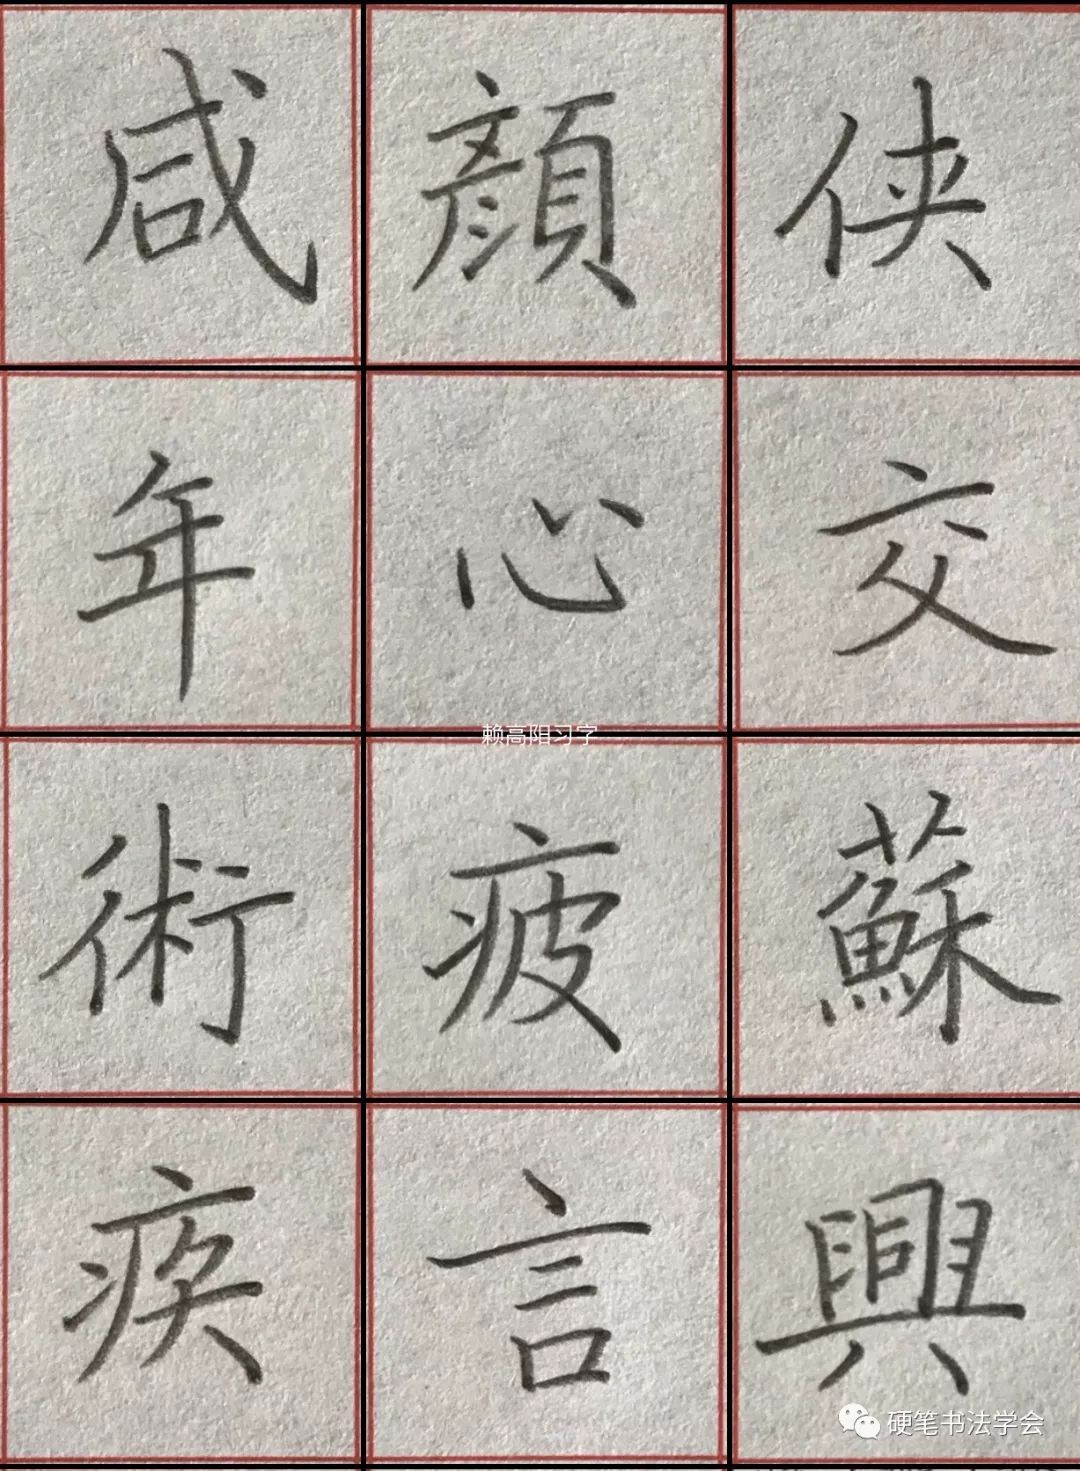 咸顔俠
年心交
赖高阳习字
術疲蘇
疾言興
硬笔书法学会